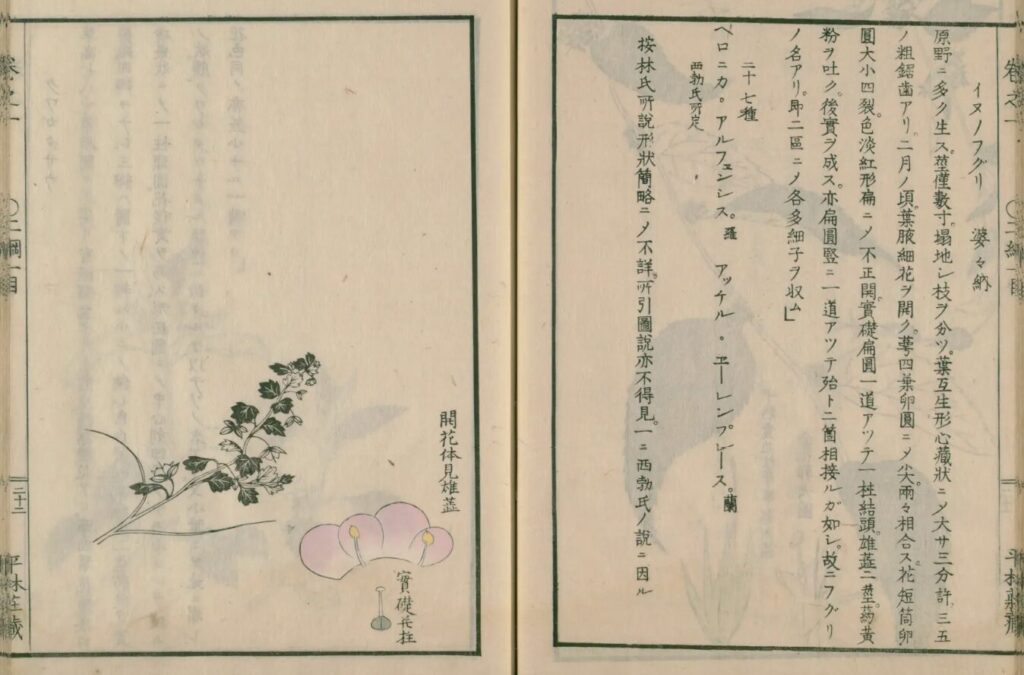 卷之一 〇二綱一目
平林莊藏
イヌノフグリ 婆々納
原野ニ多ク生ス。莖僅數寸。塌地シ枝ヲ分ツ。葉互生形心藏狀ニメ大サ三分許三五
ノ粗鋸齒アリ。二月ノ頃葉腋細花ヲ開ク。萼四葉卵圓ニメ尖。兩々相合ス。花短筒卵
圓大小四裂。色淡紅形扁ニメ不正開。實礎扁圓一道アツテ一柱結頭。雄蕋二莖葯黃
粉ヲ吐ク。後實ヲ成ス。亦扁圓竪ニ一道アツテ殆ト二箇相接ルガ如シ。故ニフグリ
ノ名アリ。即二區ニメ各多細子ヲ收ム」
二十七種
ベロニカ。アルフェンシス。羅 アッチル。ヱーレンプレース。蘭
西勃氏所定
按林氏所說形狀簡略ニメ不詳。所引圖說亦不得見。一ニ西勃氏ノ說ニ因ル
開花体見雄蕋
實礎長柱
卷之一 〇二綱一目
二十二
平林莊藏